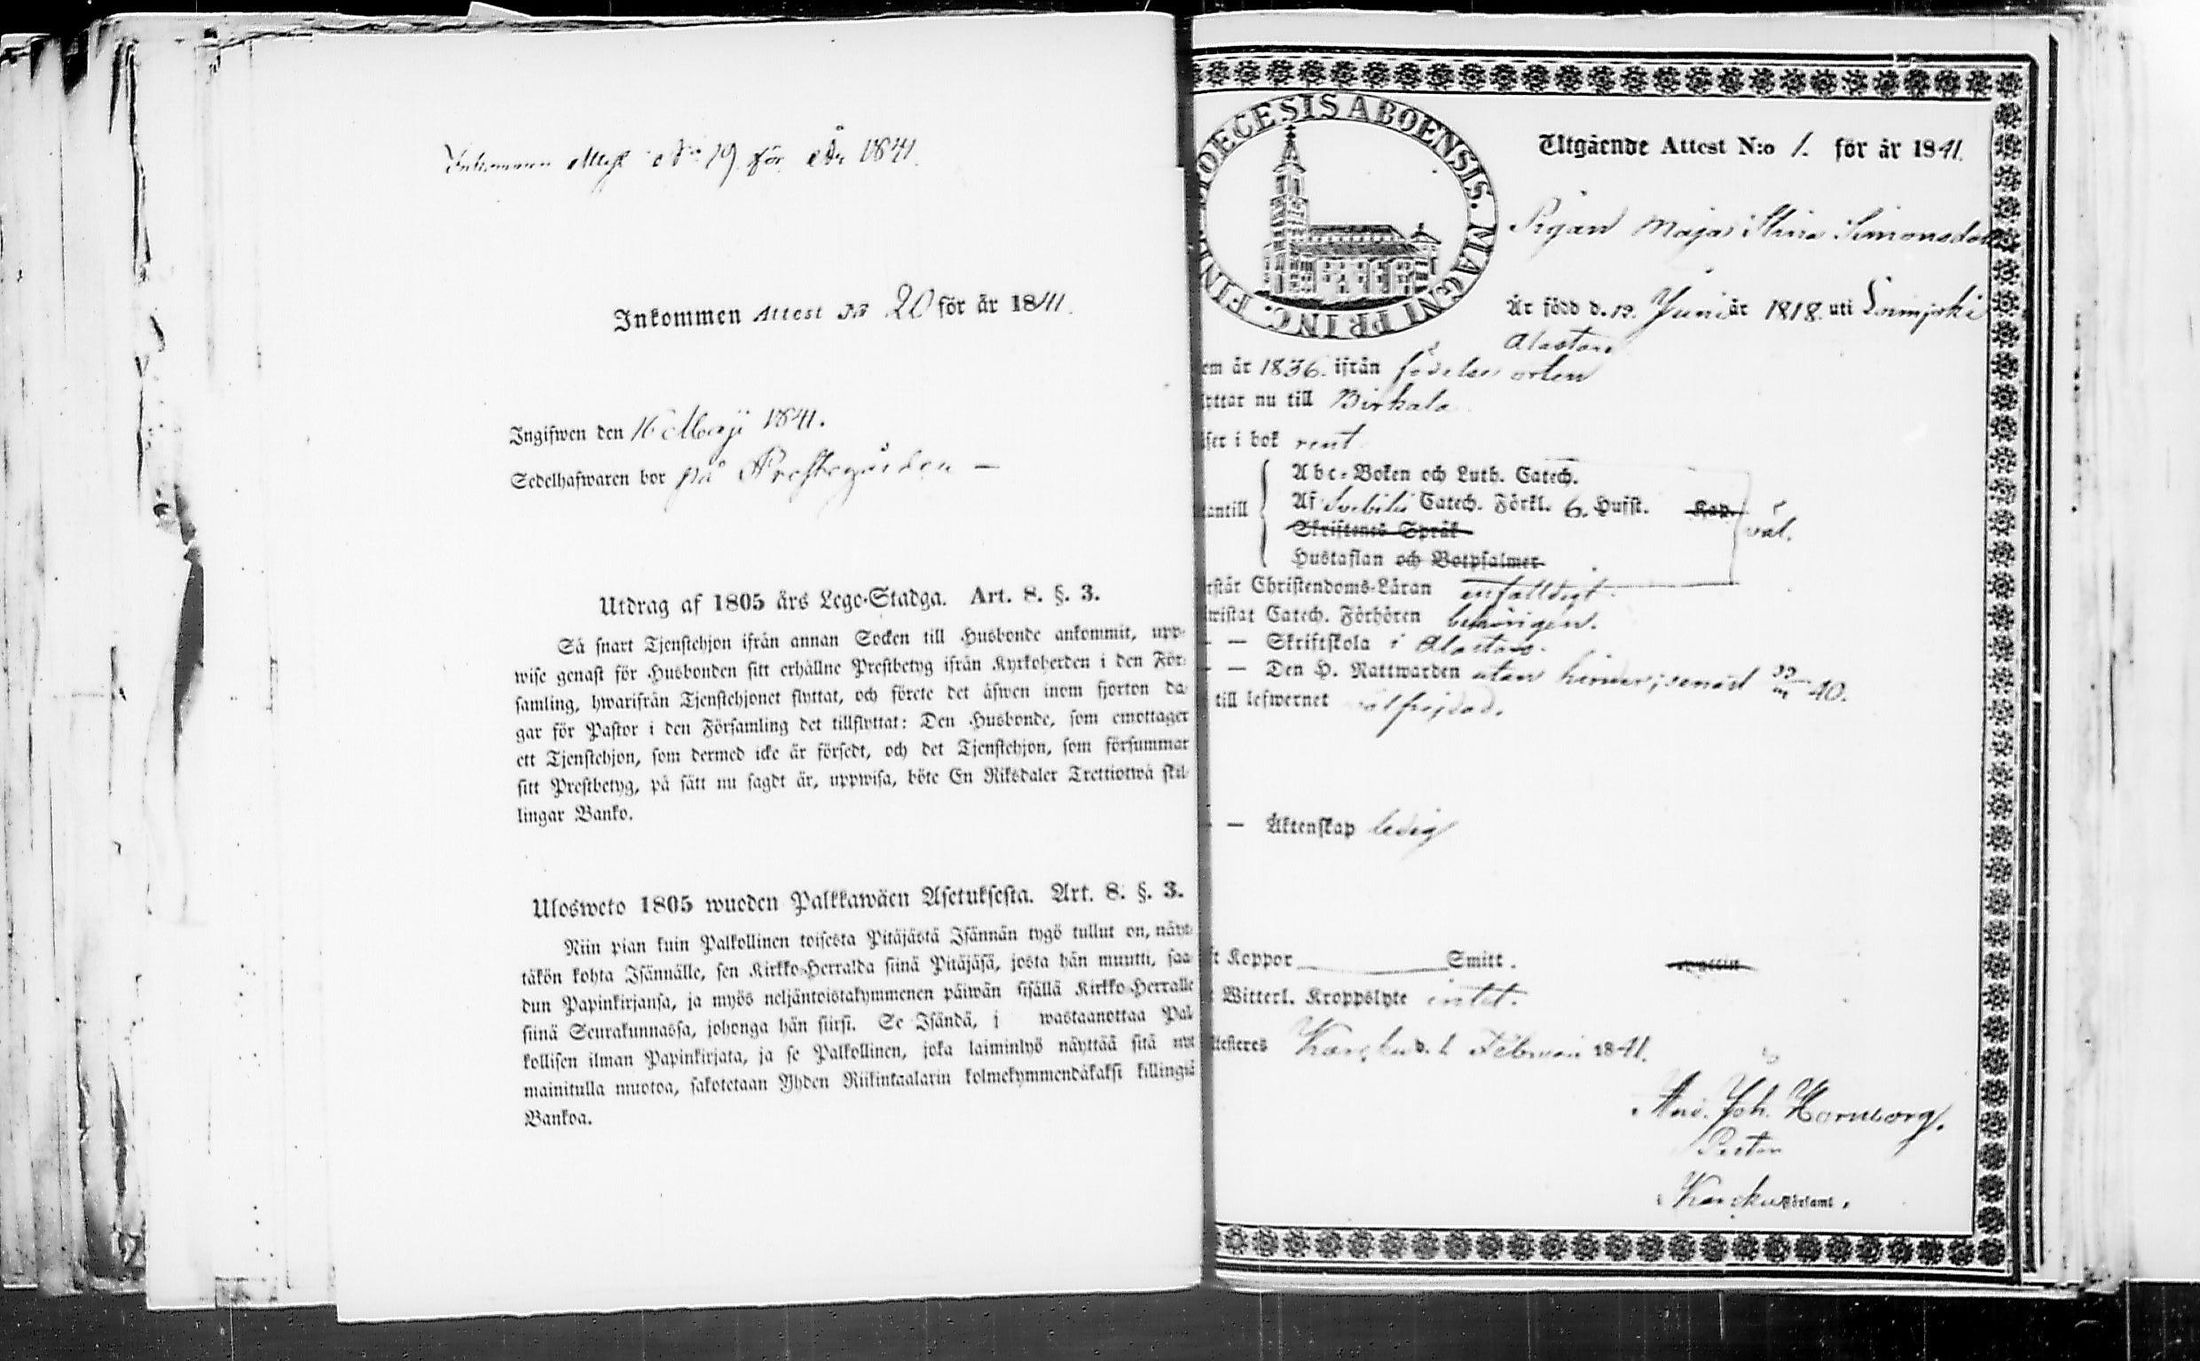 Inkommen Attest No 19 för År 1841.
Inkommen Attest No 20 för år 1841.
Ingifwen den 16 Maji 1841.
Sedelhafwaren bor på Prestegården —
Utdrag af 1805 års Lego-Stadga. Art. 8. §. 3.
Så snart Tjenstehjon ifrån annan Socken till Husbonde ankommit, upp-
wise genast för Husbonden sitt erhållne Prestbetyg ifrån Kyrkoherden i den För-
samling, hwarifrån Tjenstehjonet flyttat, och förete det äfwen inom fjorton da-
gar för Pastor i den Församling det tillflyttat: Den Husbonde, som emottager
ett Tjenstehjon, som dermed icke är försedt, och det Tjenstehjon, som försummar
sitt Prestbetyg, på sätt nu sagdt är, uppwisa, böte En Riksdaler Trettiotwå skil-
lingar Banko.
Ulosweto 1805 wuoden Palkkawäen Asetuksesta. Art. 8. §. 3.
Niin pian kuin Palkollinen toisesta Pitäjästä Isännän tygö tullut on, näyt-
täkön kohta Isännälle, sen Kirkko-Herralda siinä Pitäjäsä, josta hän muutti, saa-
dun Papinkirjansa, ja myös neljäntoistakymmenen päiwän sisällä Kirkko-Herralle
siinä Seurakunnassa, johonga hän siirsi. Se Isändä, j wastaanottaa Pal-
kollisen ilman Papinkirjata, ja se Palkollinen, joka laiminlyö näyttää sitä nyt
mainitulla muotoa, sakotetaan Yhden Riikintaalarin kolmekymmendäkaksi killingiä
Bankoa.
DIOECESIS ABOENSIS. MAGNI PRINC. FINL
Utgående Attest N:o 1. för år 1841.
Pigan Maja Stina Simonsdott
Är född d. 12. Juni år 1818. uti Loimijoki
Alastaro
em år 1836. ifrån födelse orten
yttar nu till Birkala
äser i bok rent
Abc-Boken och Luth. Catech.
antill Af Svebilii Catech. Förkl. 6. Hufst. Kap. väl.
Skriftenes Språk
Hustaflan och Botpsalmer
rstår Christendoms-Läran enfalldigt
wistat Catech. Förhören behörigen.
— — Skriftskola i Alastaro.
— — Den H. Nattwarden utan hinder; senast 40.
till lefwernet välfrejdad.
— — Äktenskap ledig
ft Koppor Smitt.
t Witterl. Kroppslyte intet.
ttesteres Karcku d. 1 Februari 1841.
And. Joh. Hornborg.
Pastor
i Karcku Församl.